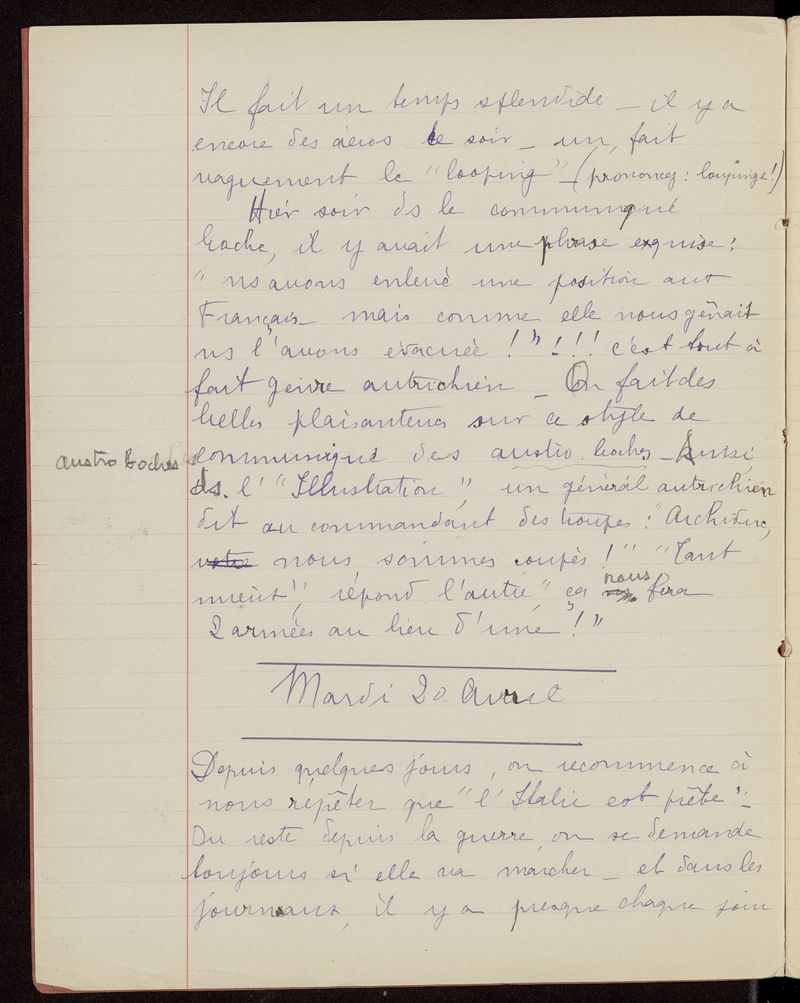 Il fait un temps splendide – il y a
encore des aéros le soir – un, fait
vaguement le "looping" – (prononcez : loupinge !)
Hier soir ds le communiqué
boche, il y avait une phrase exquise :
" ns avons enlevé une position aux
Français – mais comme elle nous gênait
ns l'avons évacuée ! " ! !! c'est tout à
fait genre autrichien – On fait des
belles plaisanteries sur ce style de
communiqué des austro boches – Ainsi,
Austro Boches
ds. l'"Illustration", un général autrichien
dit au commandant des troupes : "Archiduc,
votre nous sommes coupés ! " "Tant
mieux", répond l'autre, "ça ns nous fera
2 armées au lieu d'une ! "
Mardi 20 Avril
Depuis quelques jours, on recommence à
nous répéter que "l'Italie est prête" –
Du reste depuis la guerre, on se demande
toujours si elle va marcher – et dans les
journaux, il y a presque chaque jour